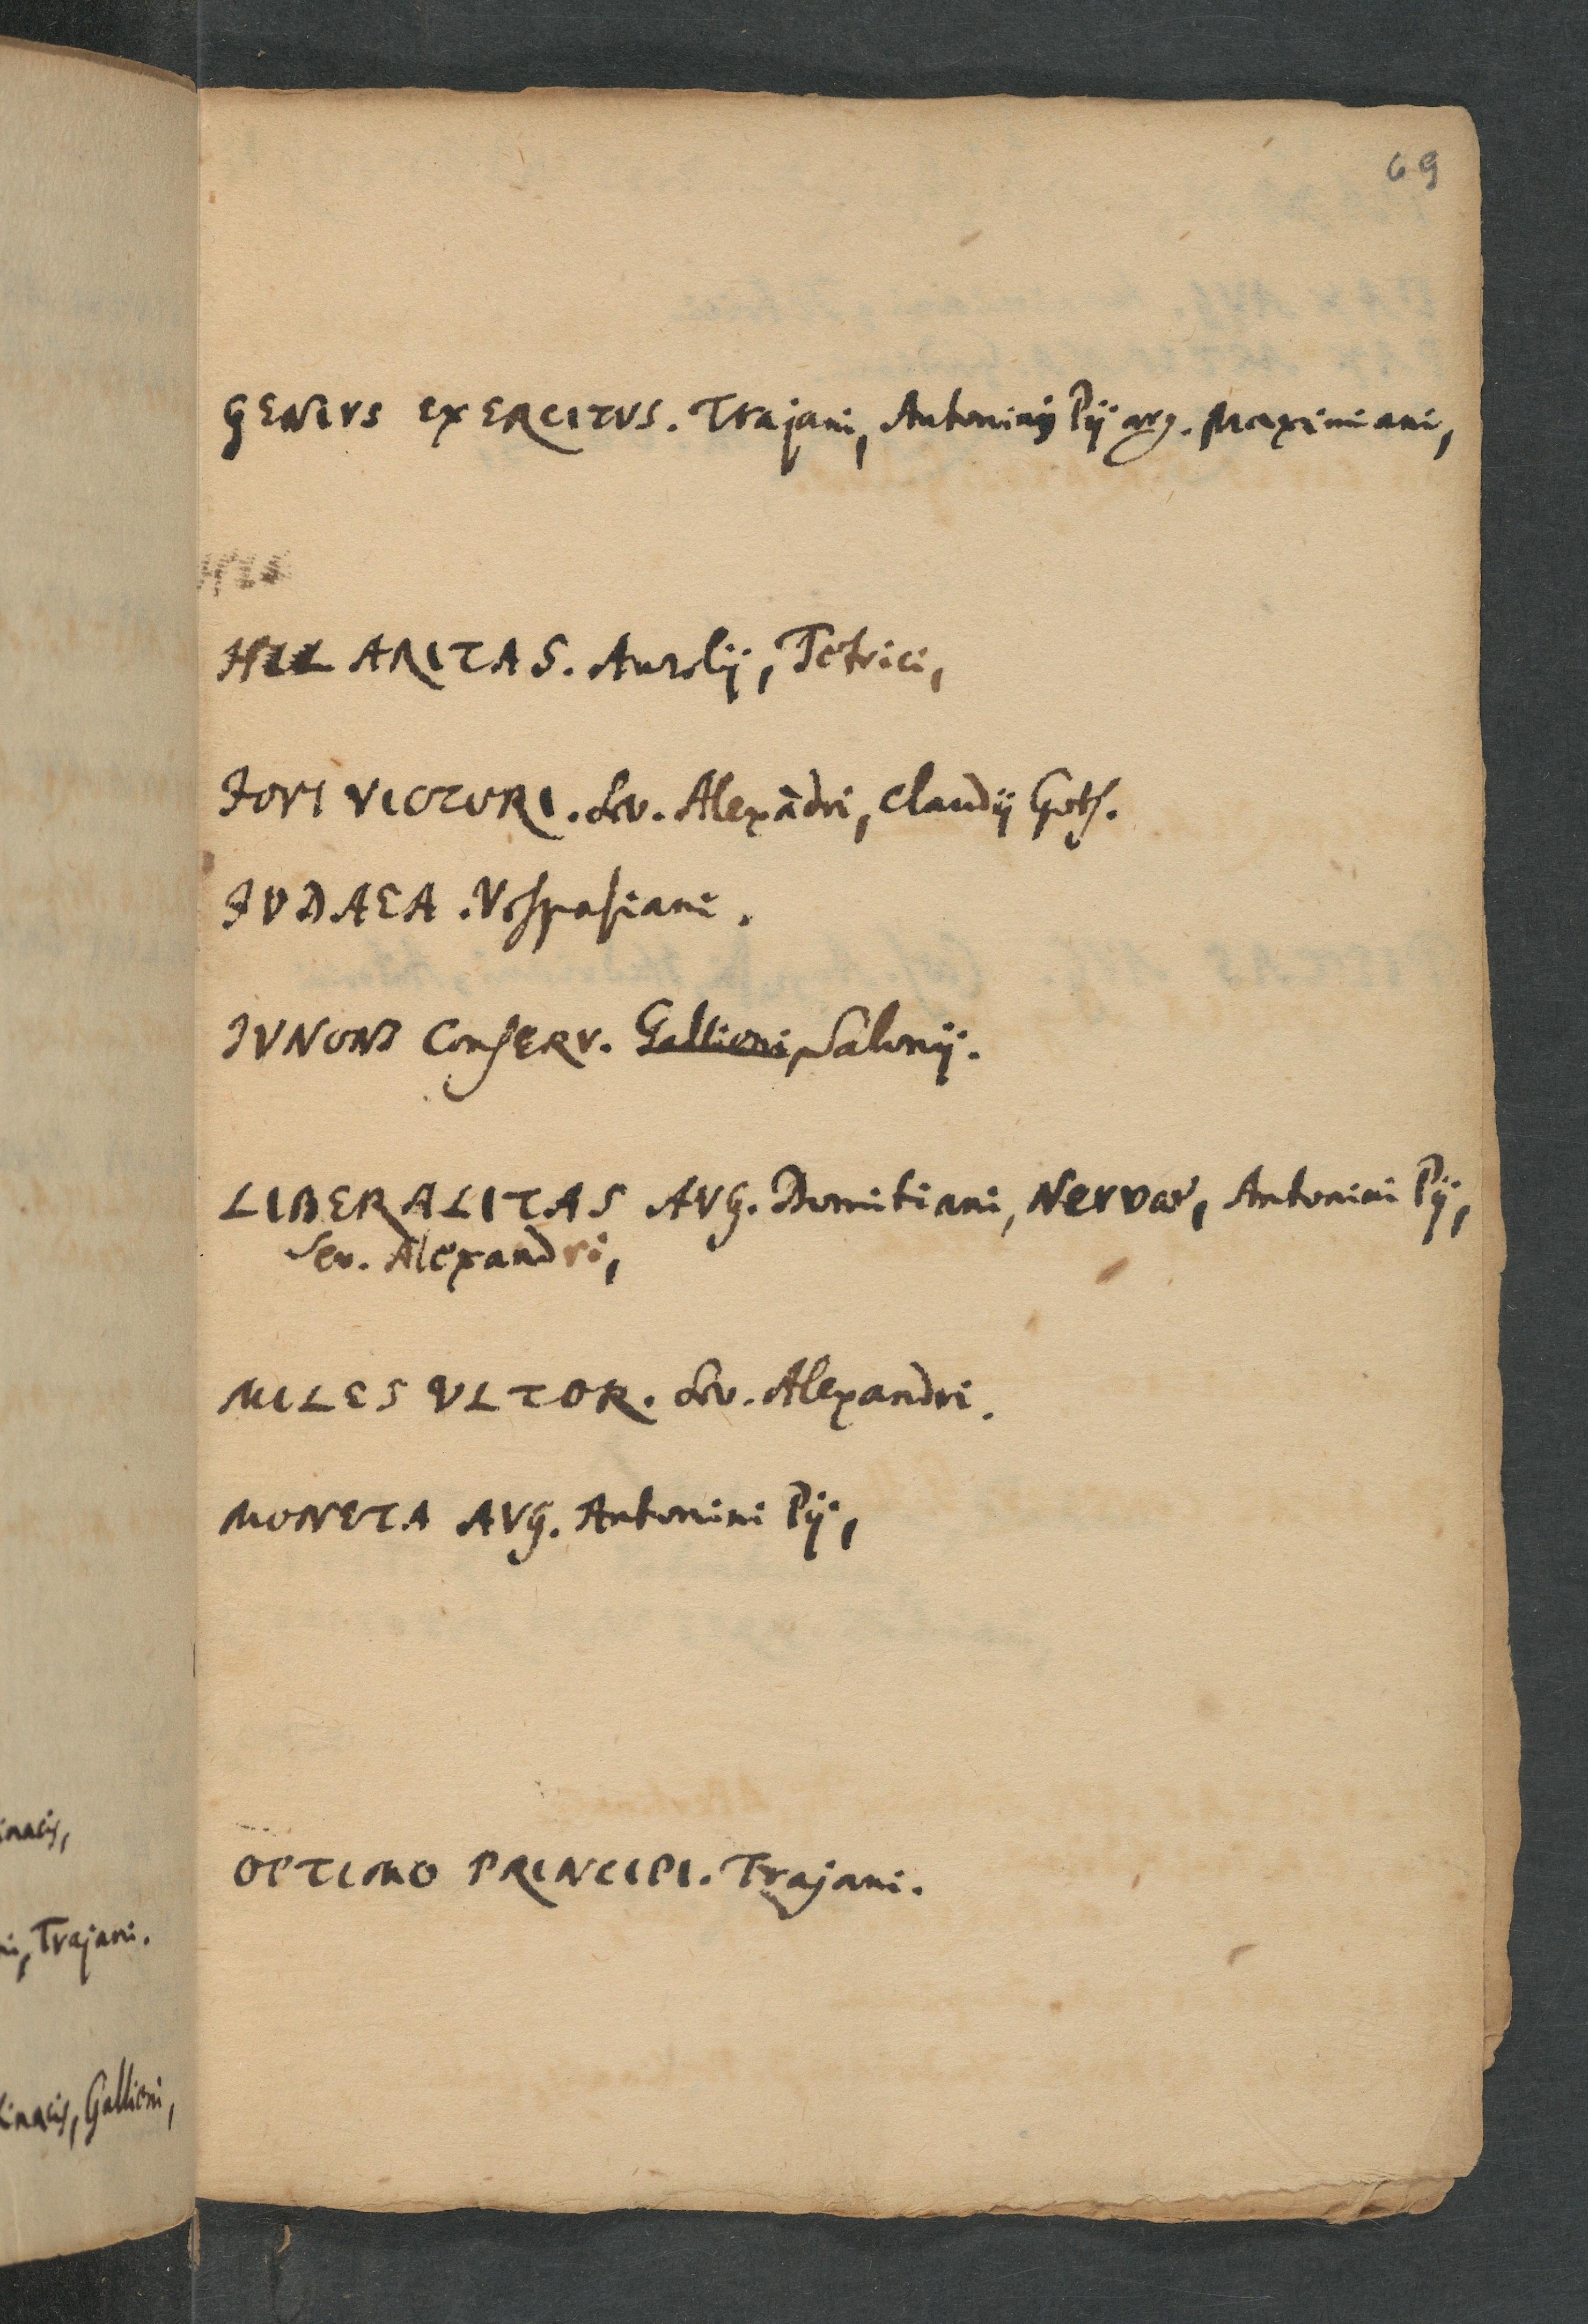 69
GENIVS EXERCITVS. Trajani, Antonini Pij arg. Maximiani,
HIL
HILARITAS. Aurelij, Tetrici,
JOVI VICTORI. Sev. Alexādri, Claudij Goth.
JVDAEA. Vespasiani.
JVNONI ConSERV. Gallieni, Salonij.
LIBERALITAS AVG. Domitiani, Nervae, Antonini Pij,
Sev. Alexandri,
MILES VLTOR. Sev. Alexandri.
MONETA AVG. Antonini Pij,
OPTIMO PRINCIPI. Trajani.
inacis,
ni, Trajani.
inacis, Gallieni,